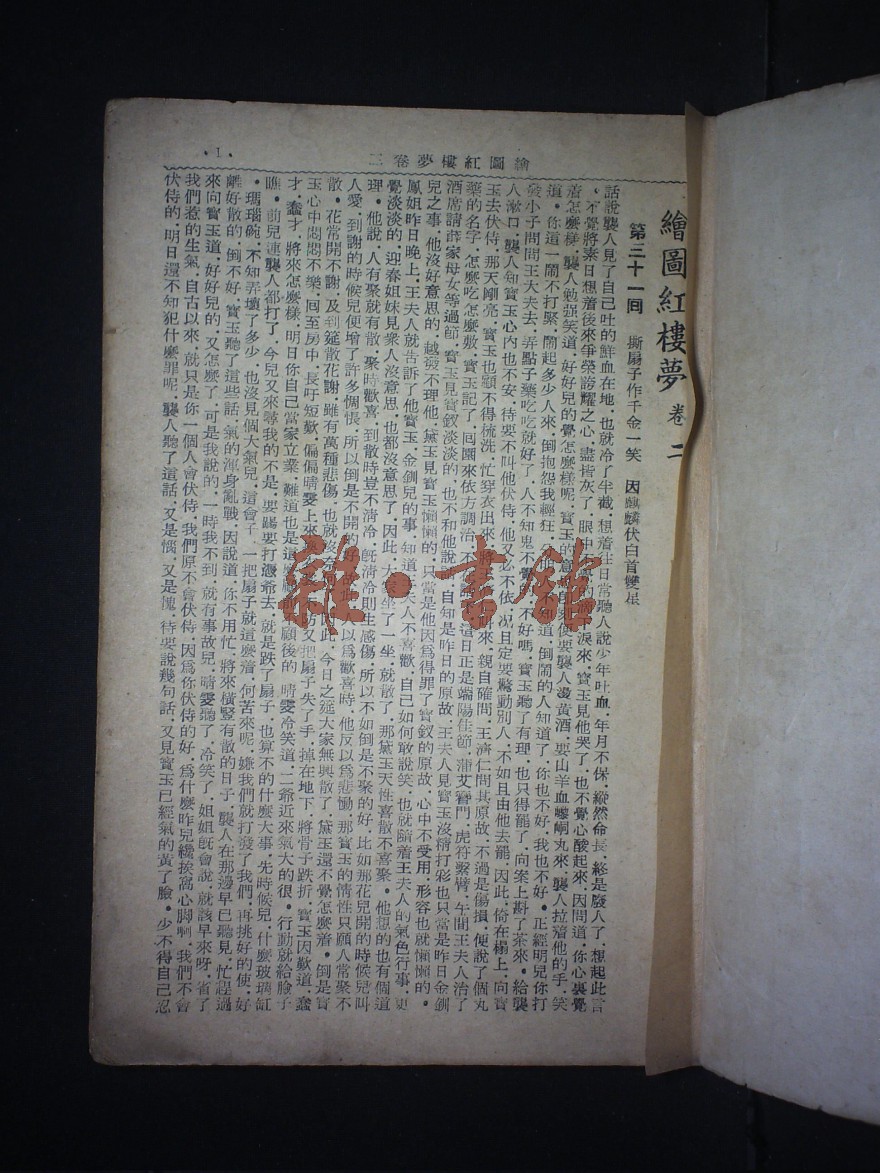 繪圖紅樓夢卷二
．1．
繪圖紅樓夢 卷二
第三十一回 撕扇子作千金一笑 因麒麟伏白首雙星
話說襲人見了自己吐的鮮血在地．也就冷了半截．想着往日常聽人說少年吐血．年月不保．縱然命長．終是廢人了．想起此言
．不覺將素日想着後來爭榮誇耀之心．盡皆灰了．眼中 的滴下淚來．寶玉見他哭了．也不覺心酸起來．因問道．你心裏覺
着怎麼樣．襲人勉强笑道．好好兒的覺怎麼樣呢．寶玉的意思卽刻便要襲人燙黃酒．要山羊血嚟峒丸來．襲人拉着他的手．笑
道．你這一鬧不打緊．鬧起多少人來．倒抱怨我輕狂． 不知道．倒鬧的人知道了．你也不好．我也不好．正經明兒你打
發小子問問王大夫去．弄點子藥吃吃就好了．人不知鬼不覺 不好嗎．寶玉聽了有理．也只得罷了．向案上斟了茶來．給襲
人漱口．襲人知寶玉心內也不安．待要不叫他伏侍．他又必不依．況且定要驚動別人．不如且由他去罷．因此．倚在榻上．向寶
玉去伏侍．那天剛亮．寶玉也顧不得梳洗．忙穿衣出來．將王 來．親自確問．王濟仁問其原故．不過是傷損．便說了個丸
藥的名字．怎麼吃怎麼敷．寶玉記了．囘園來依方調治．不 這日正是端陽佳節．蒲艾簪門．虎符繫臂．午間王夫人治了
酒席請薛家母女等過節．寶玉見寶釵淡淡的．也不和他說 自知是昨日的原故．王夫人見寶玉沒精打彩也只當是昨日金釧
兒之事．他沒好意思的．越發不理他．黛玉見寶玉懶懶的．只當是他因爲得罪了寶釵的原故．心中不受用．形容也就懶懶的．
鳳姐昨日晚上．王夫人就告訴了他寶玉．金釧兒的事．知道 夫人不喜歡．自己如何敢說笑．也就隨着王夫人的氣色行事．更
覺淡淡的．迎春姐妹見衆人沒意思．也都沒意思了．因此．大 坐了一坐．就散了．那黛玉天性喜散不喜聚．他想的也有個道
理．他說．人有聚就有散．聚時歡喜．到散時豈不淸冷．旣淸冷則生感傷．所以不如倒是不聚的好．比如那花兒開的時候兒叫
人愛．到謝的時候兒便增了許多惆悵．所以倒是不開的好．故此 以爲歡喜時．他反以爲悲慟．那寶玉的情性只願人常聚不
散．花常開不謝．及到筵散花謝．雖有萬種悲傷．也就沒奈何 因此．今日之筵大家無興散了．黛玉還不覺怎麼着．倒是寶
玉心中悶悶不樂．囘至房中．長吁短歎．偏偏晴雯上來換 不防又把扇子失了手．掉在地下．將骨子跌折．寶玉因歎道．蠢
才．蠢才．將來怎麼樣．明日你自己當家立業．難道也是這麼顧前不顧後的．晴雯冷笑道．二爺近來氣大的很．行動就給臉子
瞧．前兒連襲人都打了．今兒又來尋我的不是．要踢要打憑爺去．就是跌了扇子．也算不的什麼大事．先時候兒．什麼玻璃缸
．瑪瑙碗．不知弄壞了多少．也沒見個大氣兒．這會子．一把扇子就這麼着．何苦來呢．嫌我們就打發了我們．再挑好的使．好
離好散的．倒不好．寶玉聽了這些話．氣的渾身亂戰．因說道．你不用忙．將來橫豎有散的日子．襲人在那邊早已聽見．忙趕過
來向寶玉道．好好兒的．又怎麼了．可是我說的．一時我不到．就有事故兒．晴雯聽了．冷笑了．姐姐旣會說．就該早來呀．省了
我們惹的生氣．自古以來．就只是你一個人會伏侍．我們原不會伏侍．因爲你伏侍的好．爲什麼昨兒纔挨窩心脚啊．我們不會
伏侍的．明日還不知犯什麼罪呢．襲人聽了這話．又是惱．又是愧．待要說幾句話．又見寶玉已經氣的黃了臉．少不得自己忍
雜·書館